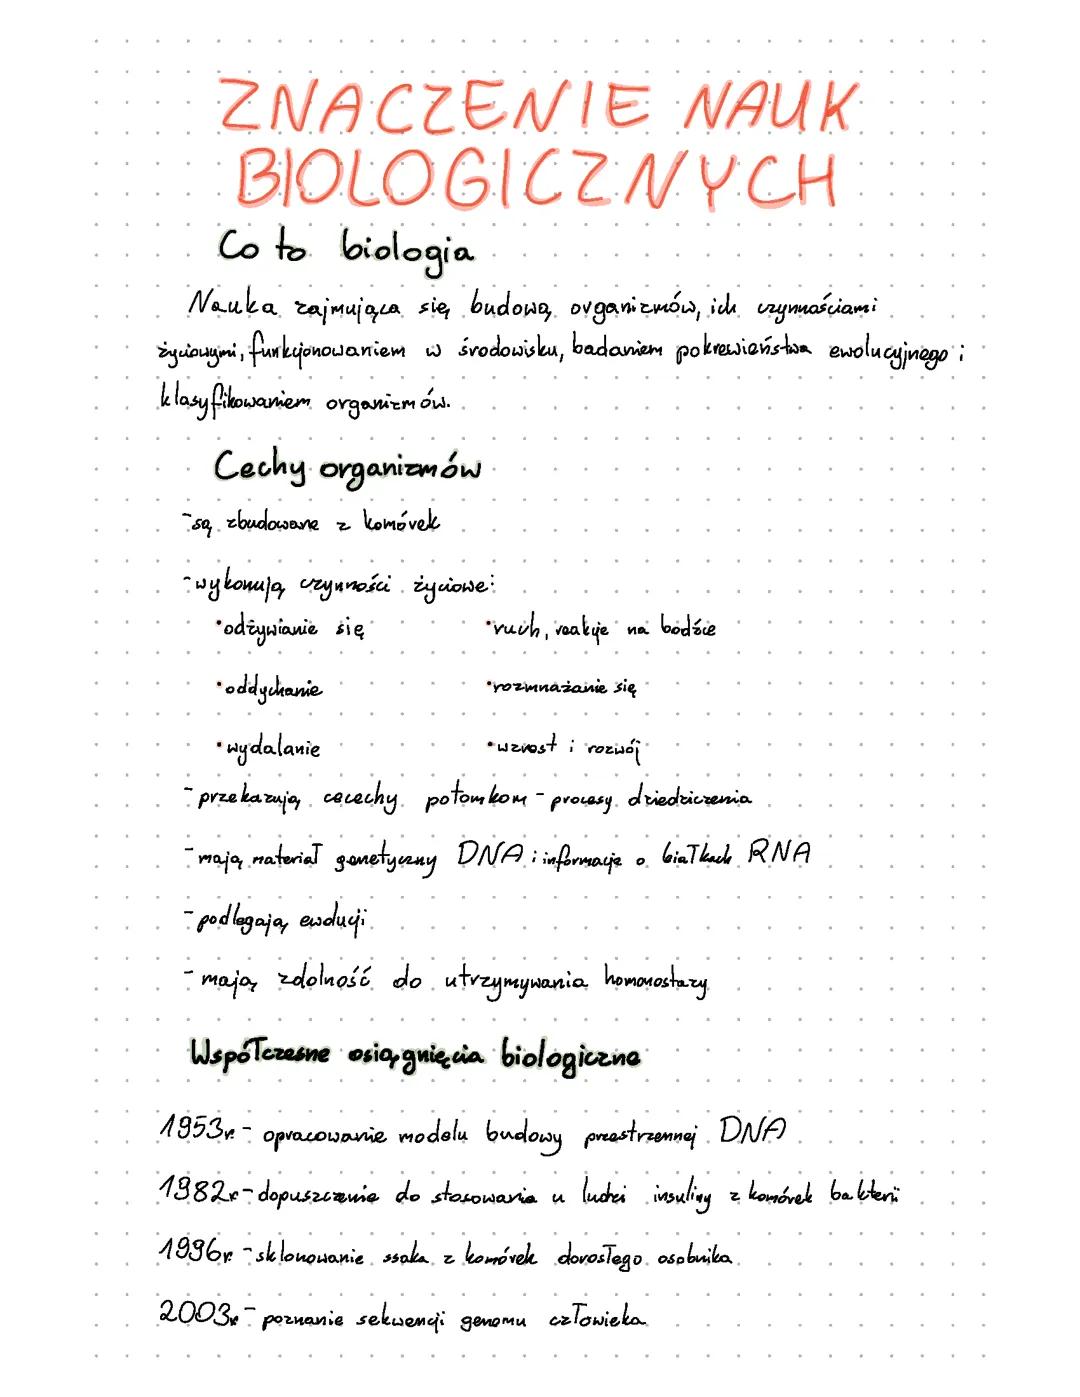 ZNACZENIE NAUK
BIOLOGICZNYCH
Co to biologia
Nauka zajmująca się budową organizmów, ich czynnościami
życiowymi, funkcjonowaniem w środowisku, badaniem pokrewieństwa ewolucyjnego i
klasyfikowaniem organizmów.
Cechy organizmów
- są zbudowane z komórek
- wykonują czynności życiowe:
• odżywianie się • ruch, reakcje na bodźce
• oddychanie • rozmnażanie się
• wydalanie • wzrost i rozwój
- przekazują cecechy potomkom - procesy dziedziczenia
- mają materiał genetyczny DNA i informacje o białkach RNA
- podlegają ewolucji
- mają zdolność do utrzymywania homonostazy
Współczesne osiągnięcia biologiczne
1953r. - opracowanie modelu budowy przestrzennej DNA
1982r - dopuszczenie do stosowania u ludzi insuliny z komórek bakterii
1996r. - sklonowanie ssaka z komórek dorosłego osobnika
2003r - poznanie sekwencji genomu człowieka